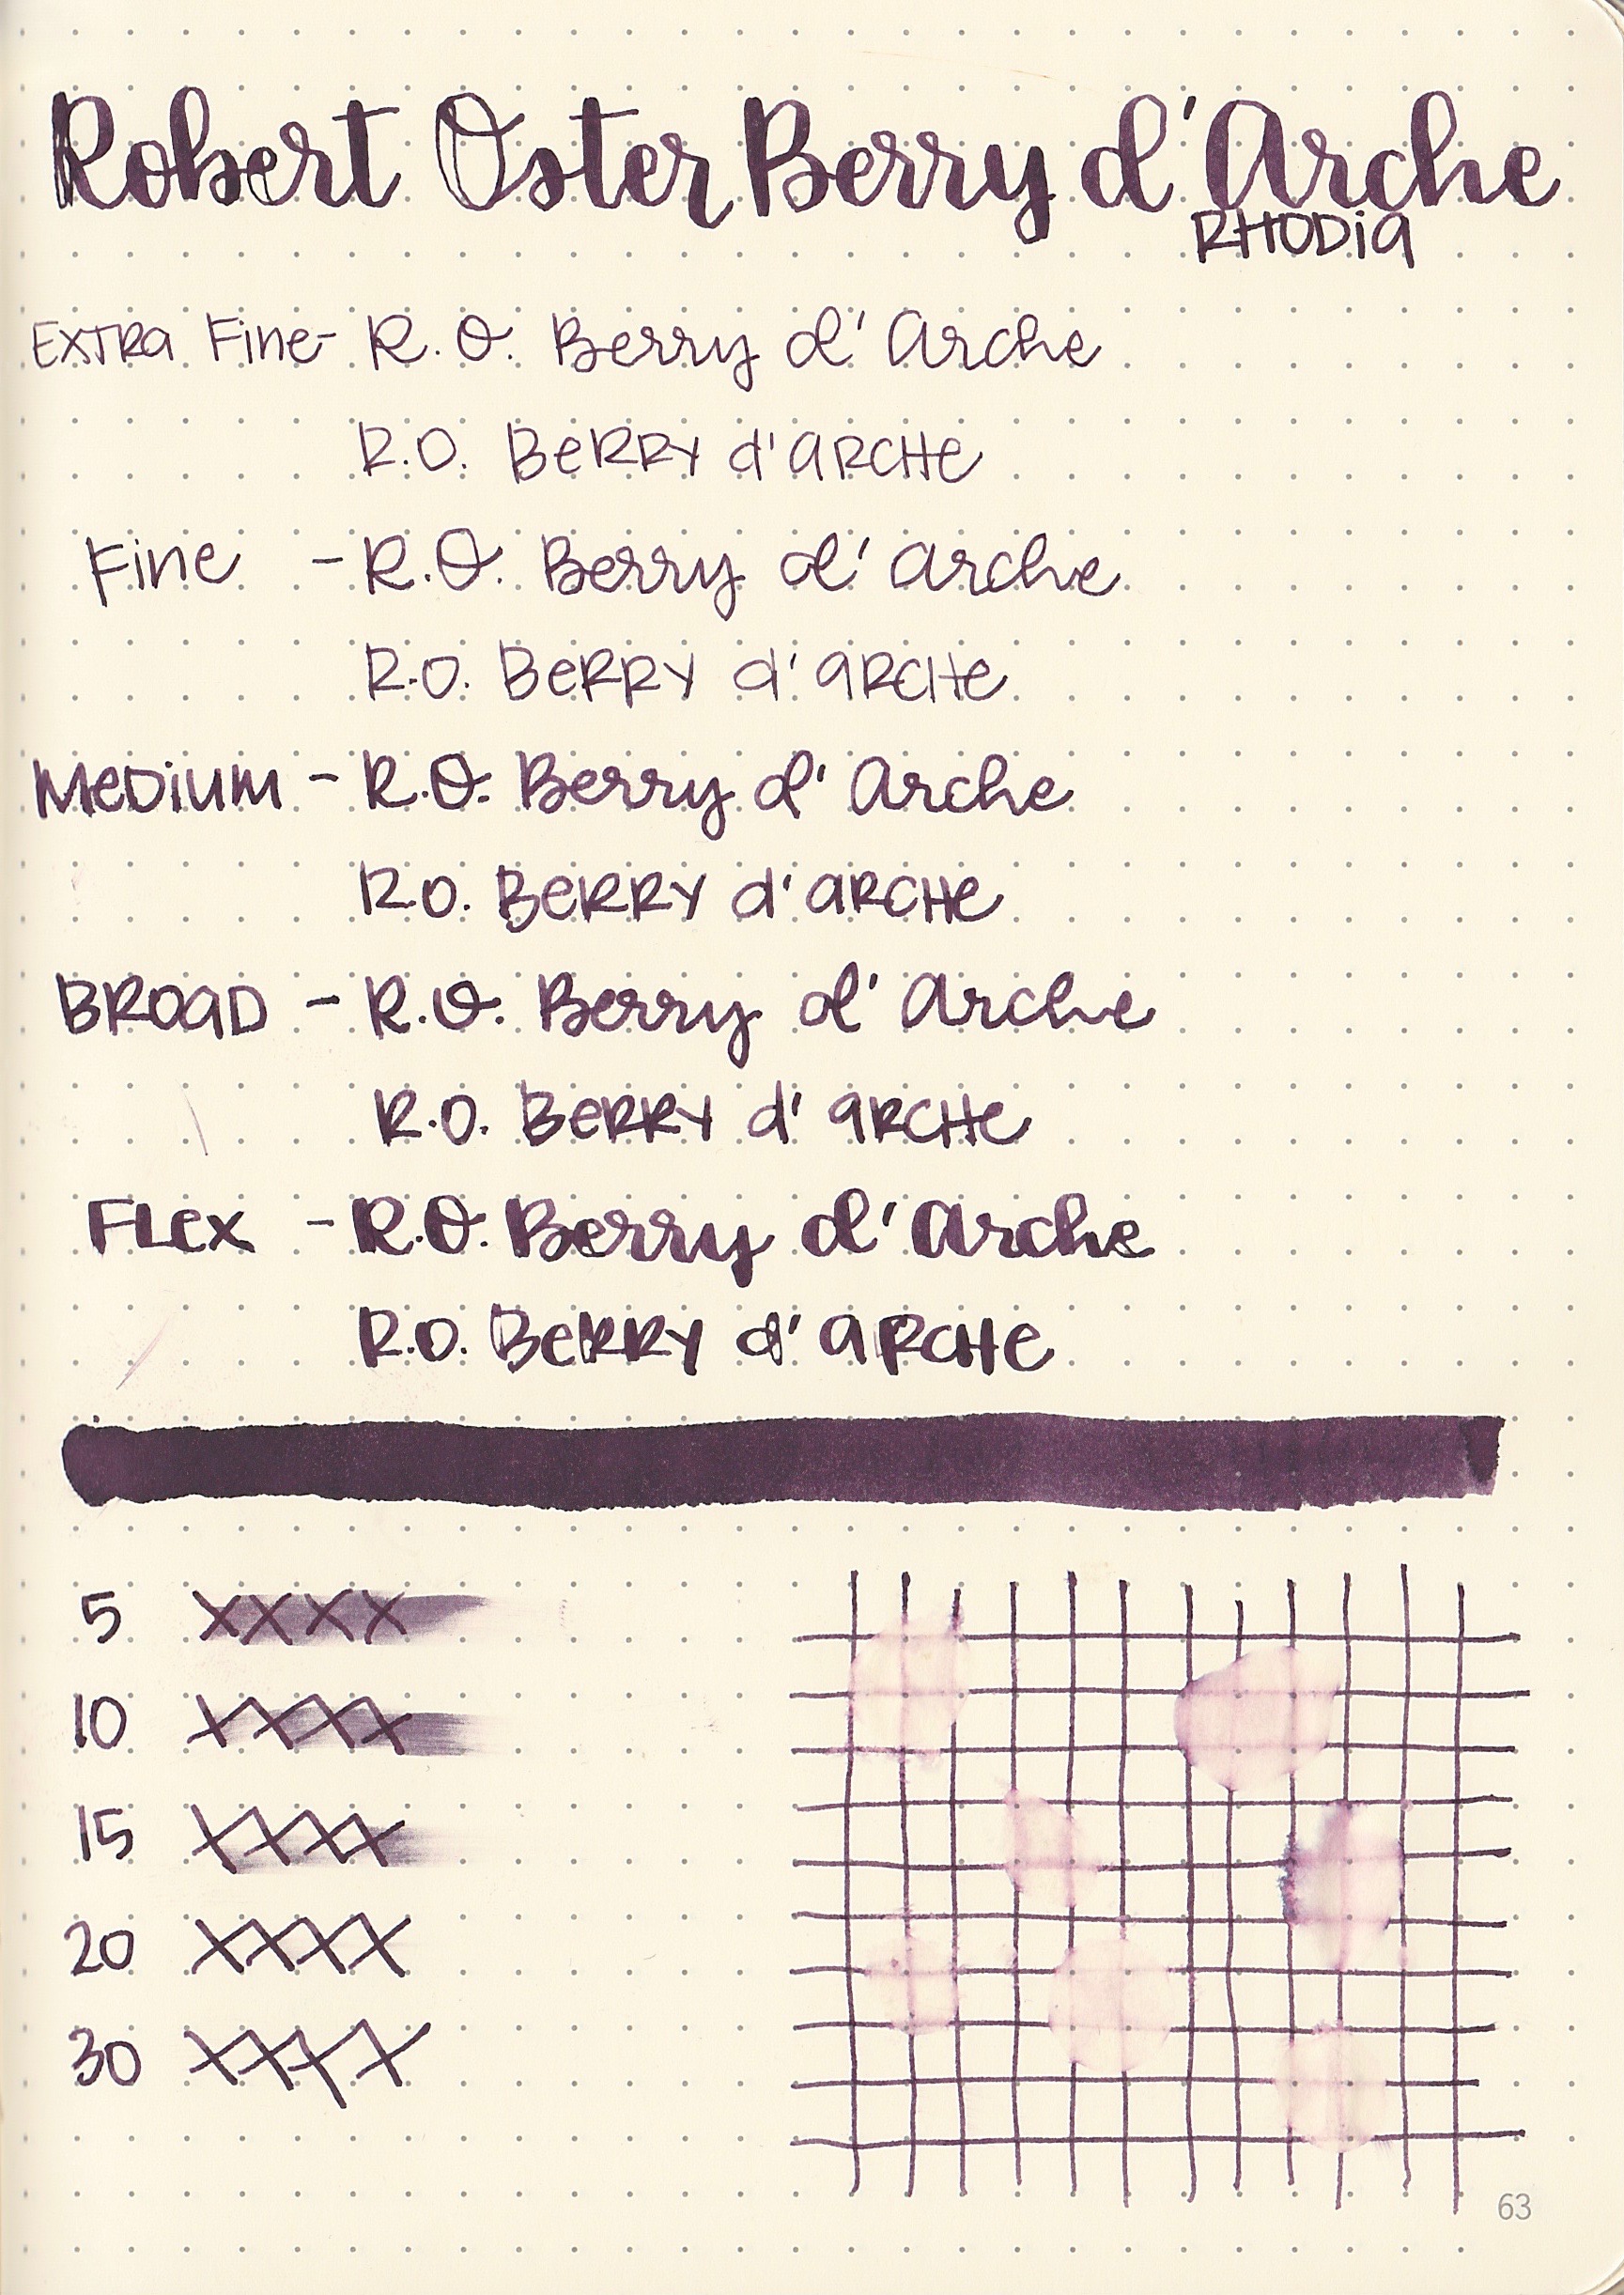 Robert Oster Berry d'Arche
RHODIA
Extra Fine - R.O. Berry d'Arche
R.O. Berry d'Arche
Fine - R.O. Berry d'Arche
R.O. Berry d'Arche
Medium - R.O. Berry d'Arche
R.O. Berry d'Arche
Broad - R.O. Berry d'Arche
R.O. Berry d'Arche
Flex - R.O. Berry d'Arche
R.O. Berry d'Arche
5 XXXX
10 XXXX
15 XXXX
20 XXXX
30 XXXX
63